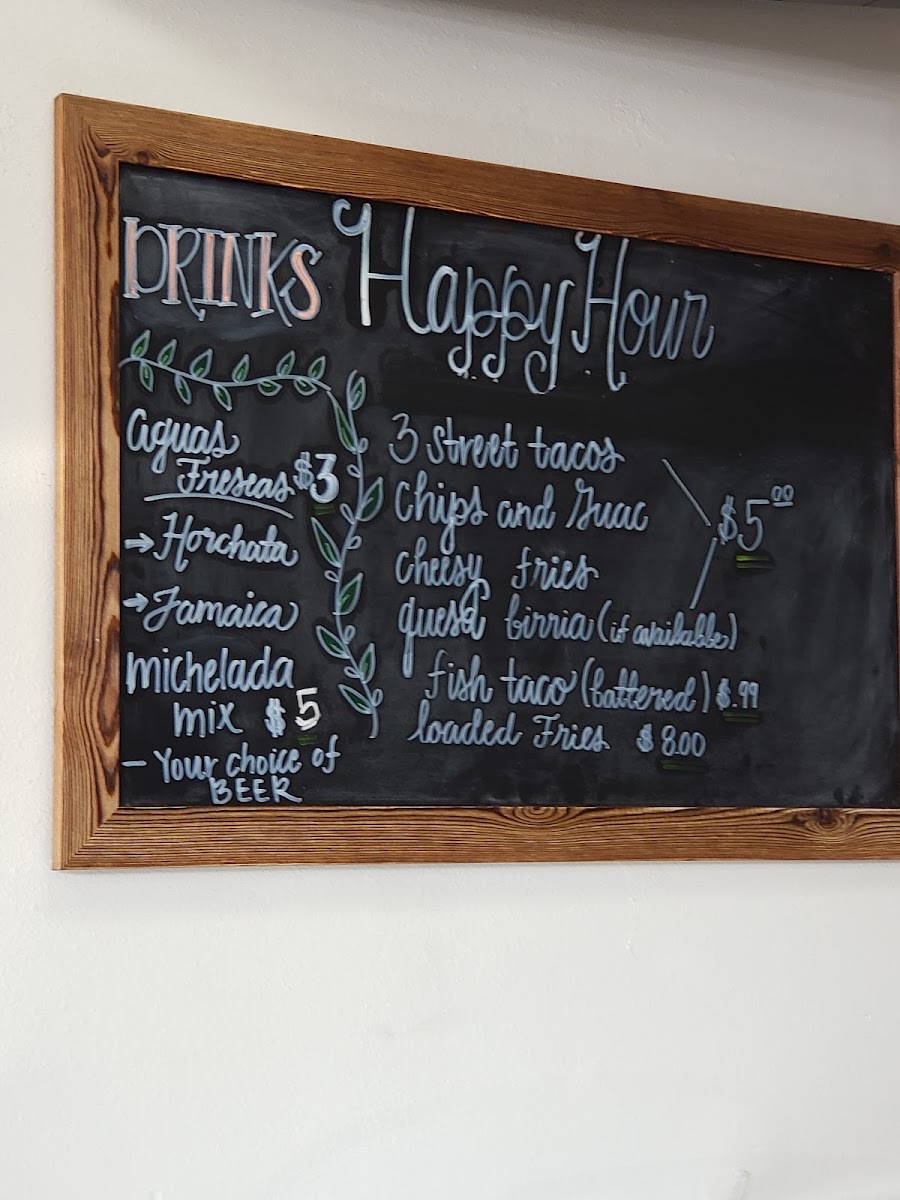 DRINKS
aguas
Frescas $3
→ Horchata
→ Jamaica
michelada
mix $5
- Your choice of
BEER
Happy Hour
3 street tacos
Chips and Guac
cheesy fries
$5.00
quesa birria (if available)
fish taco (battered) $.99
loaded Fries $8.00